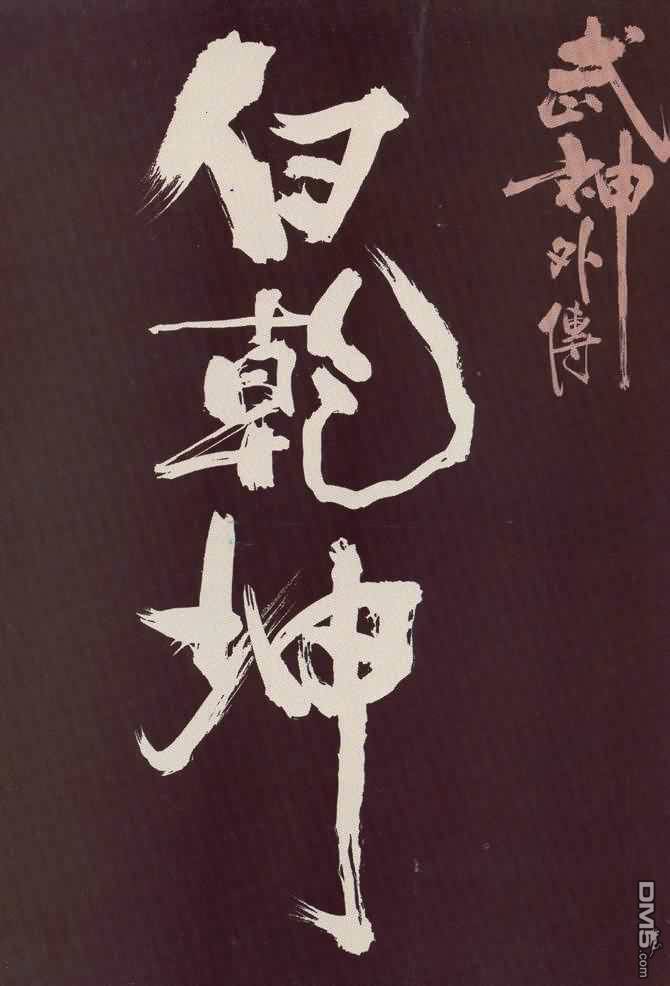 武神外傳
白乾坤
DM5.com